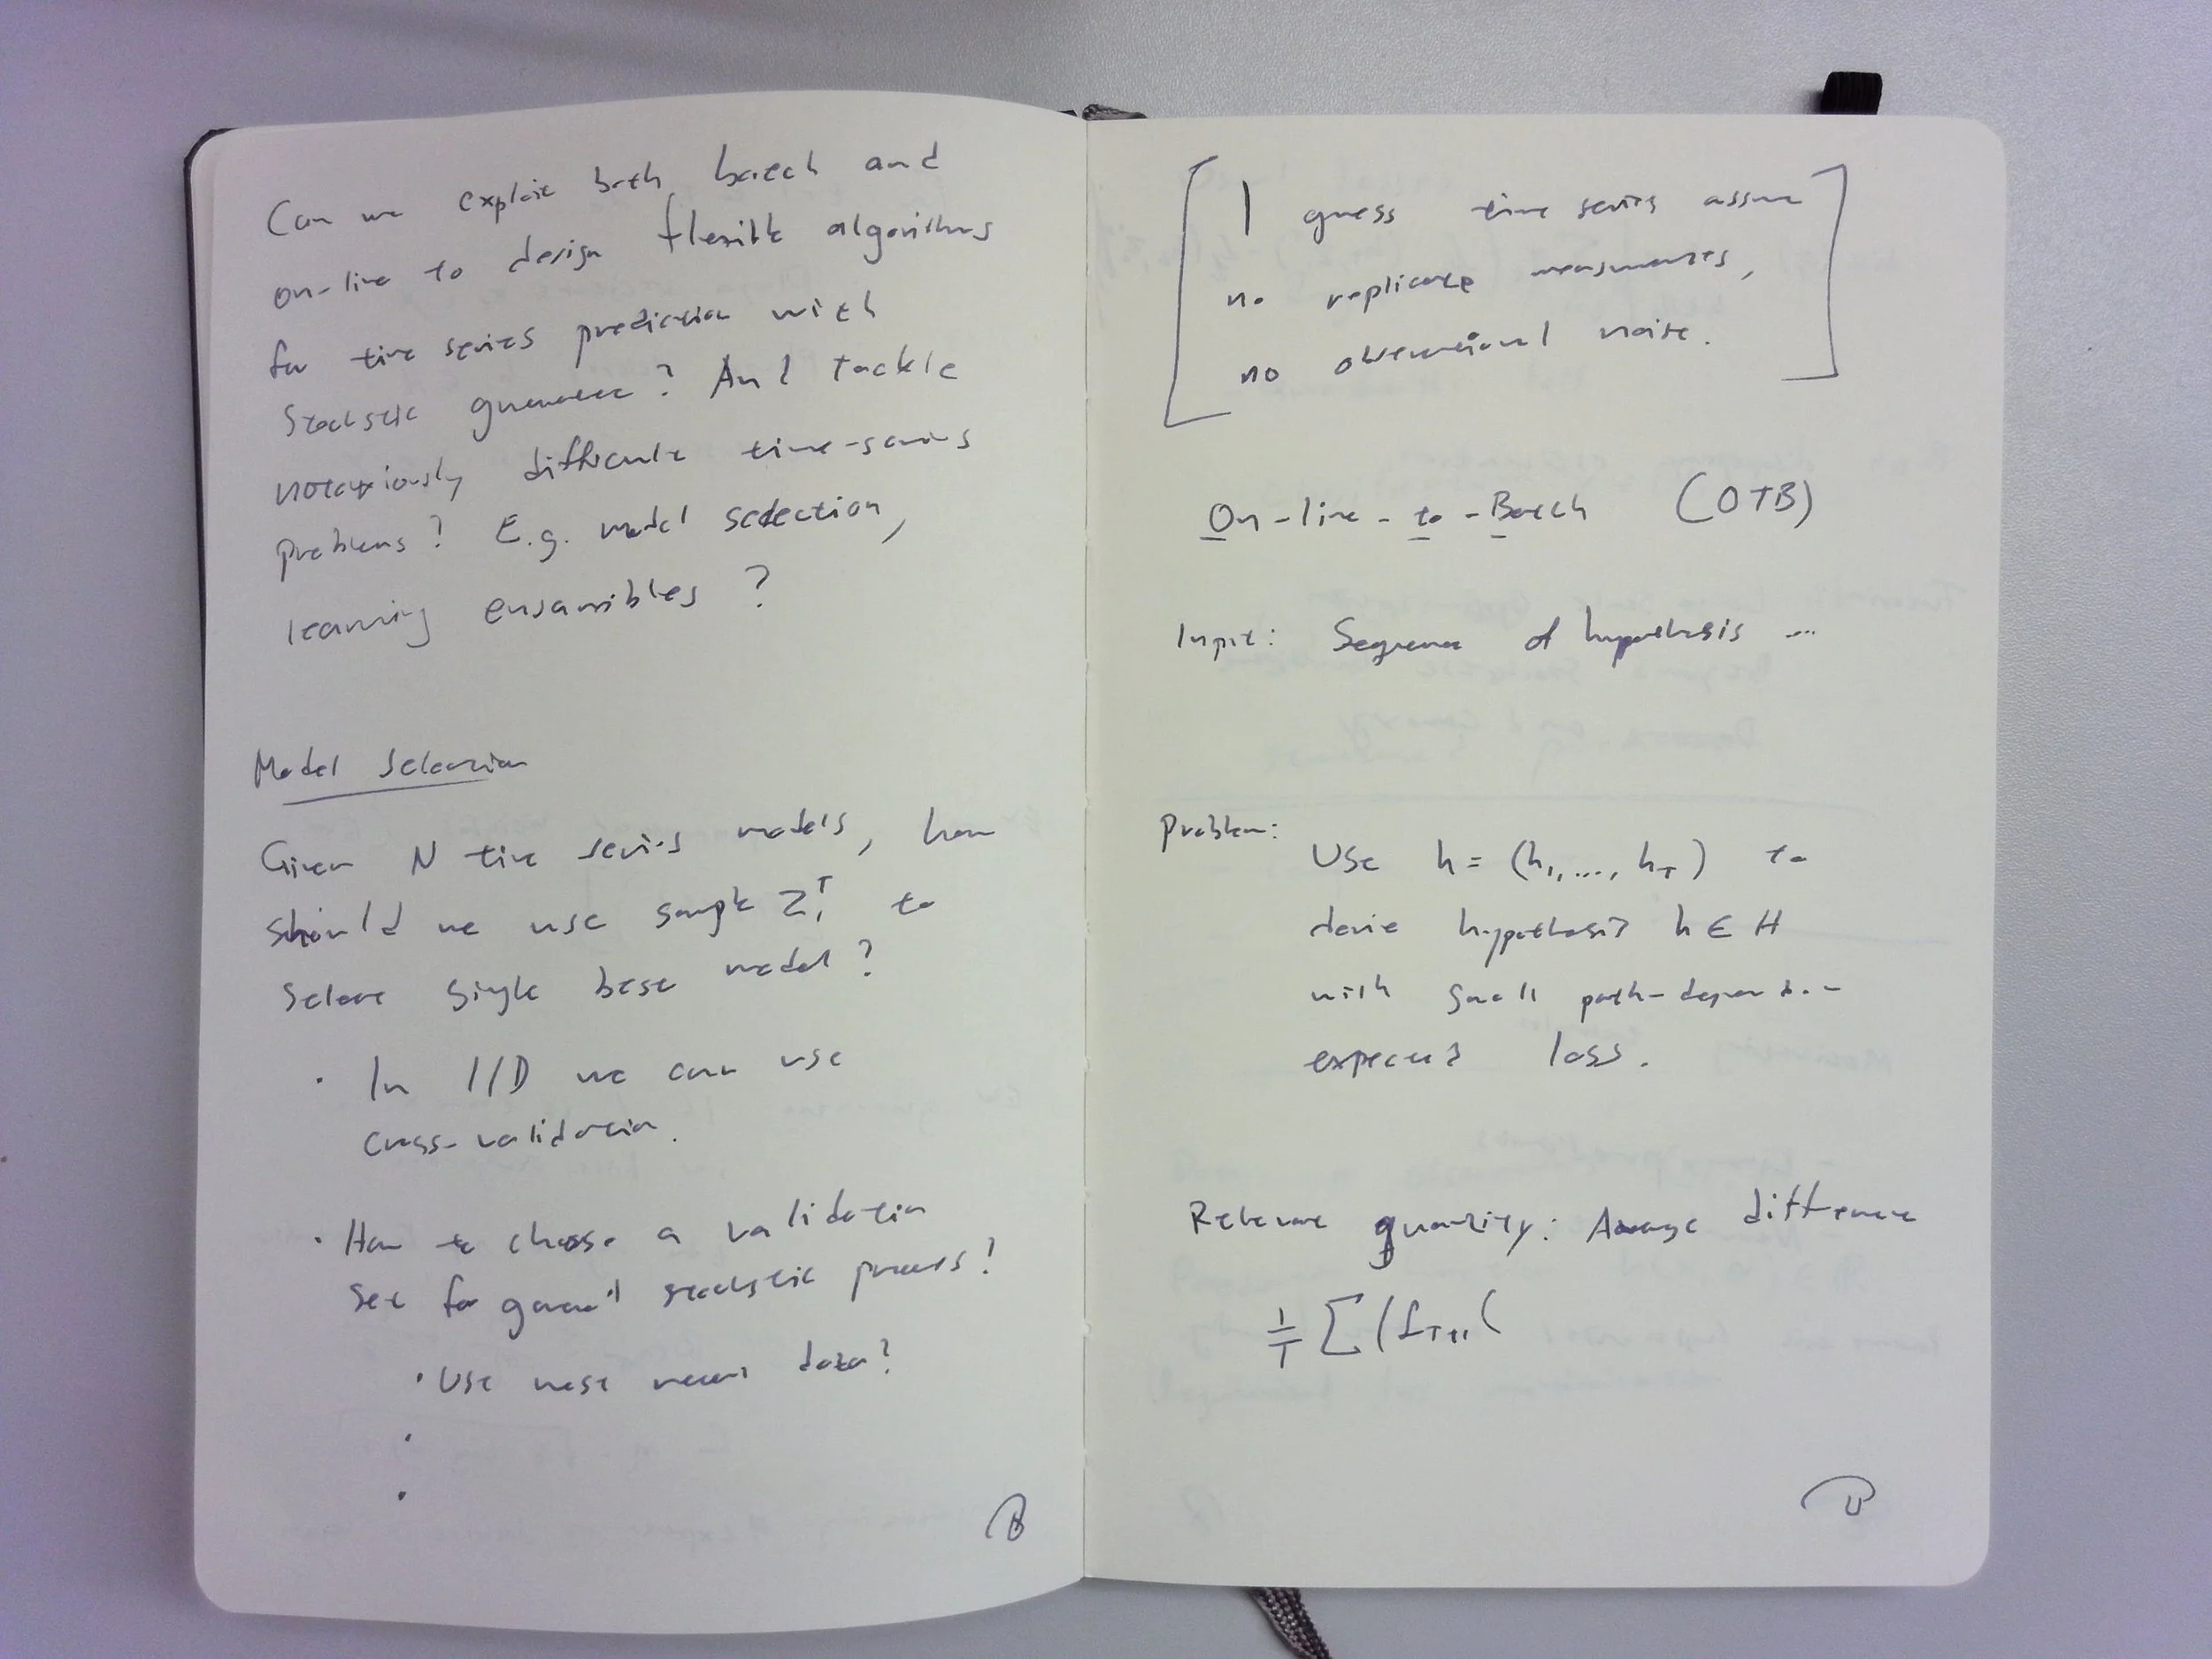 Can we exploit both batch and
on-line to design flexible algorithms
for time series prediction with
stochastic guarantee? And tackle
notoriously difficult time-series
problems? E.g. model selection,
learning ensambibles?
Model Selection
Given N time series models, how
should we use sample Z₁ᵀ to
select single best model?
· In IID we can use
cross-validation.
· How to choose a validation
set for general stochstic process?
· Use most recent data?
·
·
[ I guess time series assume
no replicate measurements,
no observational noise. ]
On-line-to-Batch (OTB)
Input: Sequence of hypothesis ...
Problem:
Use h = (h₁, ..., h_T) to
derive hypothesis h ∈ H
with small path-dependent
expected loss.
Relevant quantity: Average difference
1/T ∑ (L_{T+1}(